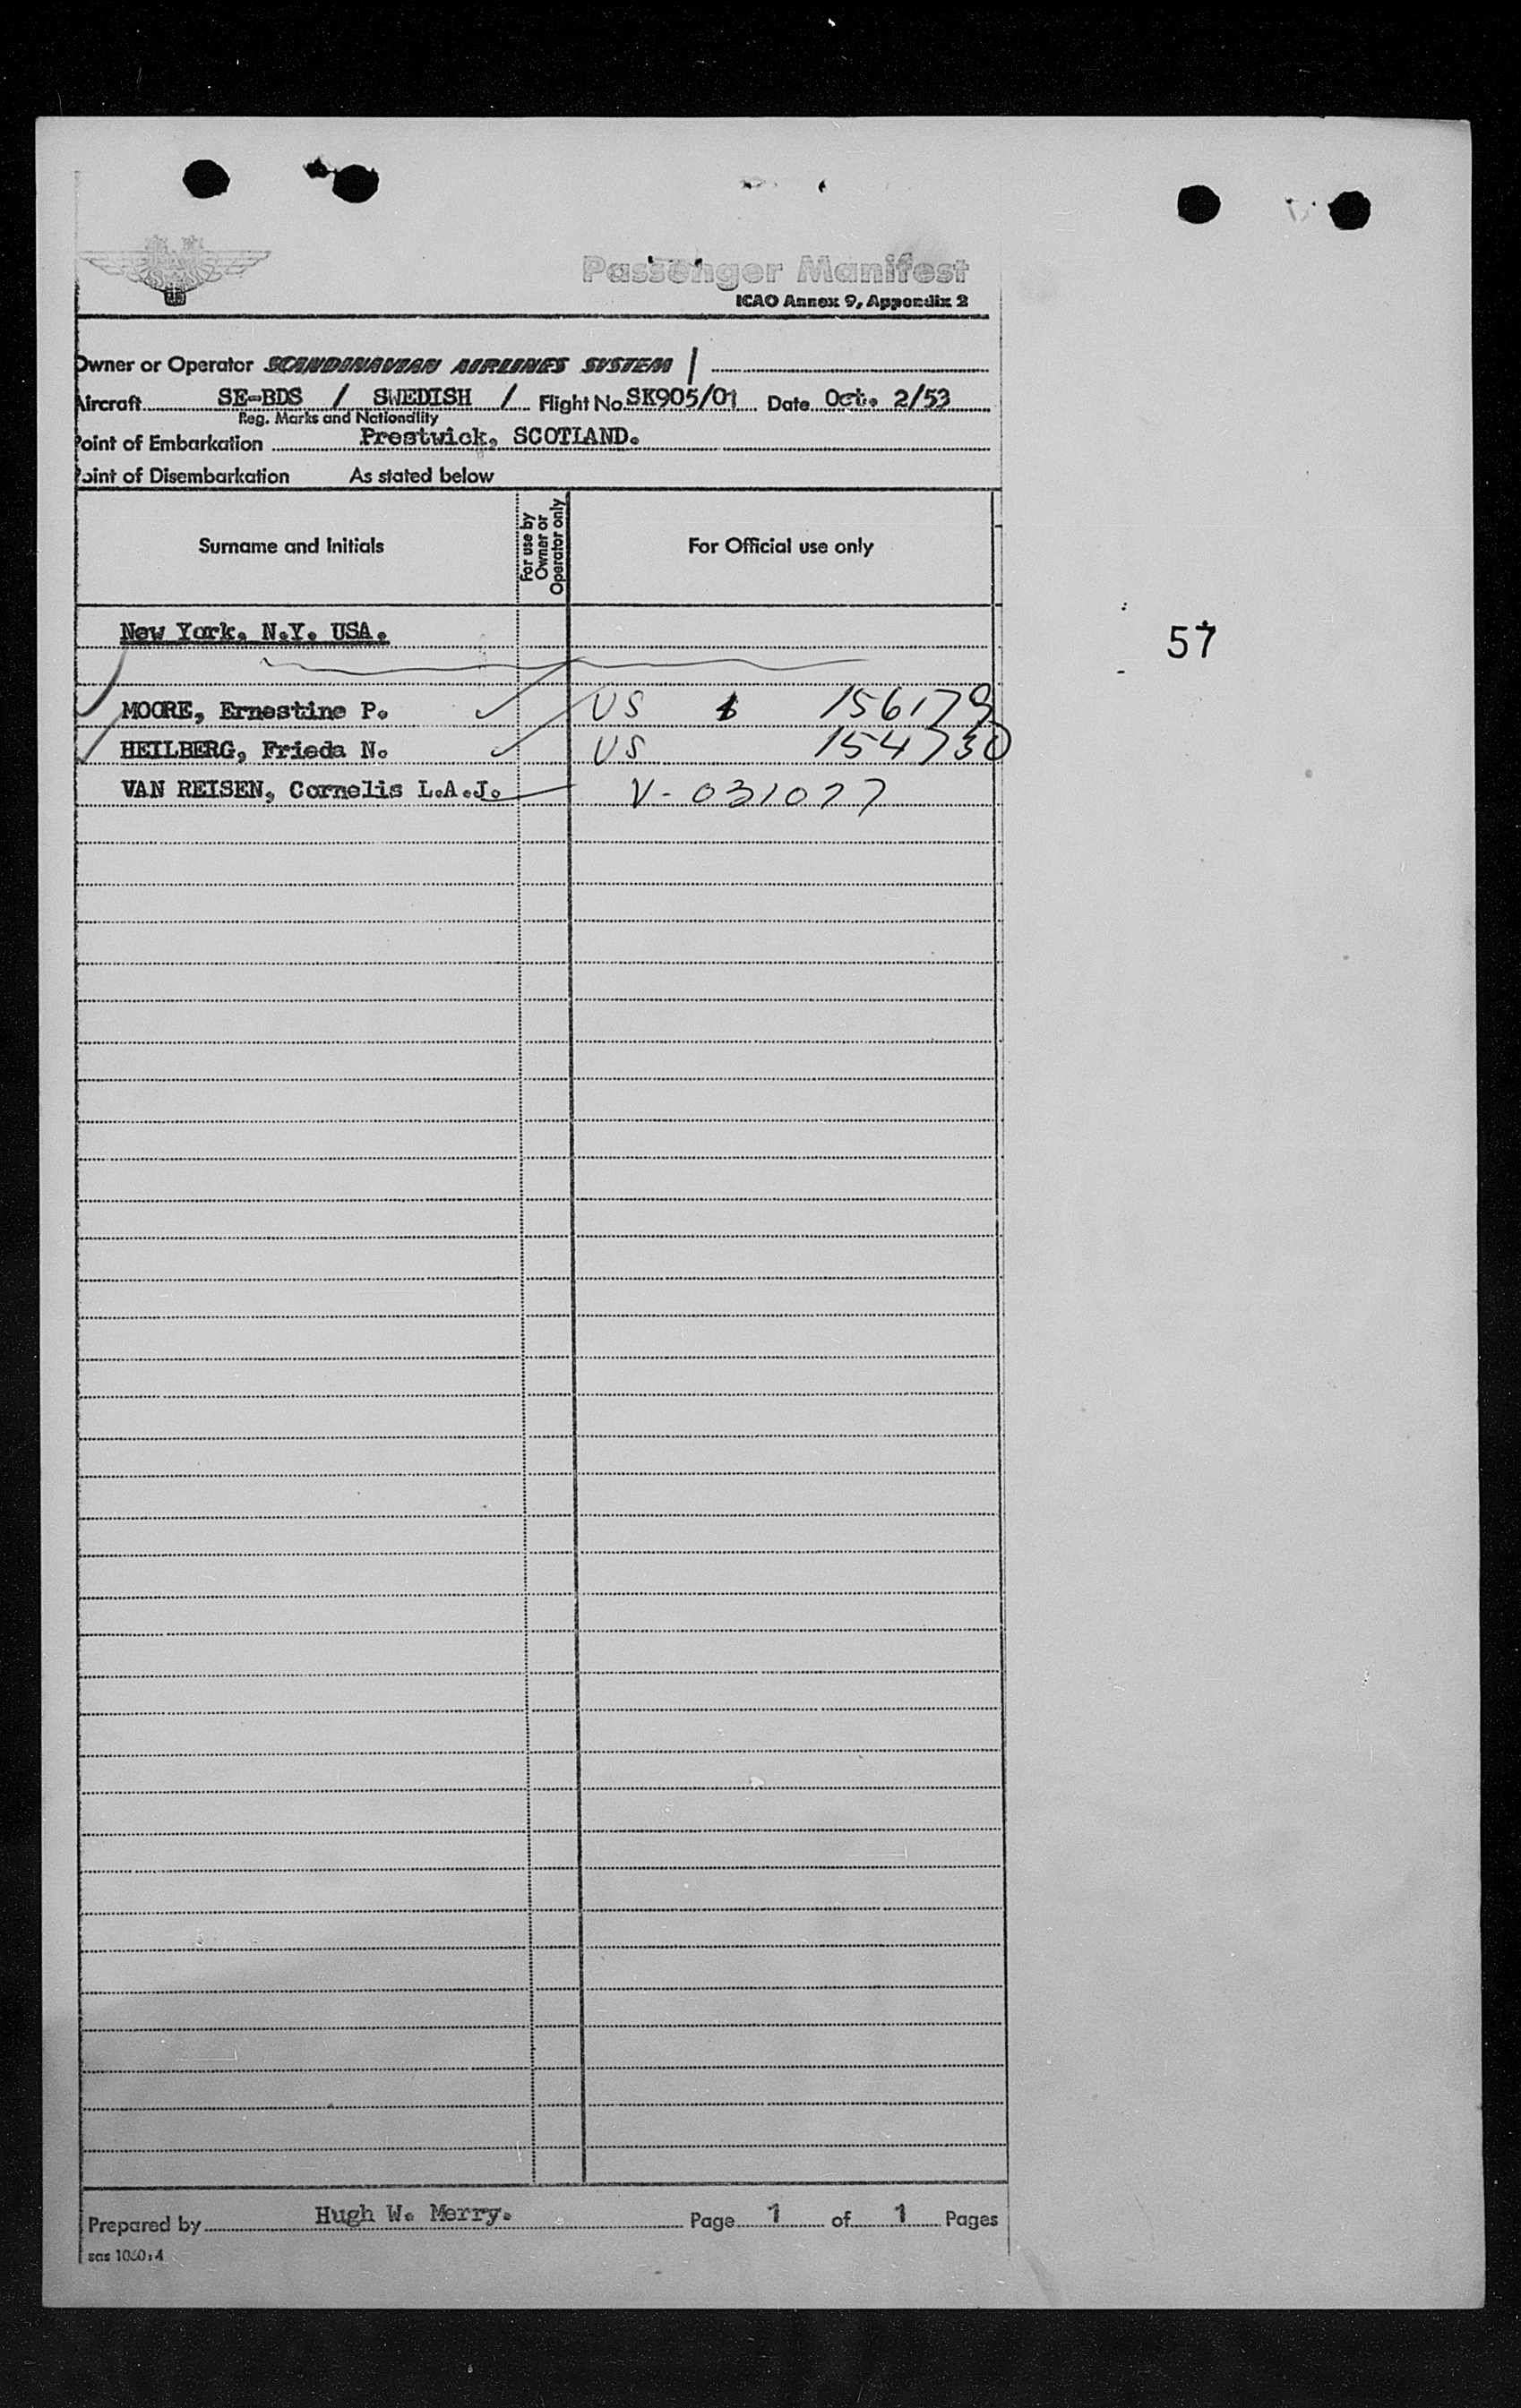 Passenger Manifest
ICAO Annex 9, Appendix 2
Owner or Operator SCANDINAVIAN AIRLINES SYSTEM
Aircraft SE-BDS / SWEDISH / Flight No. SK905/01 Date Oct. 2/53
Reg. Marks and Nationality
Point of Embarkation Prestwick, SCOTLAND.
Point of Disembarkation As stated below
Surname and Initials For use by Owner or Operator only For Official use only
New York, N.Y. USA.
57
MOORE, Ernestine P. US 156179
HEILBERG, Frieda N. US 154730
VAN REISEN, Cornelis L.A.J. V-031077
Prepared by Hugh W. Merry. Page 1 of 1 Pages
sas 1060:4